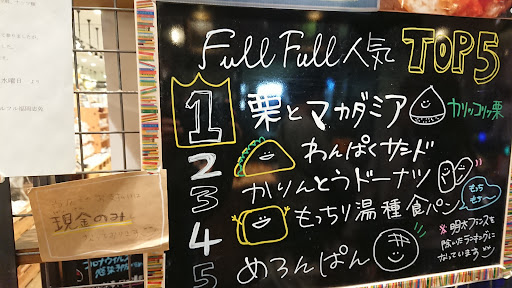 FullFull人気 TOP5
1 栗とマカダミア カリッコリッ栗
2 わんぱくサンド
3 かりんとうドーナツ
4 もっちり湯種食パン もっちもっち
5 めろんぱん
※明太フランスを
除いたランキングに
なっています
現金のみ
水曜日 より